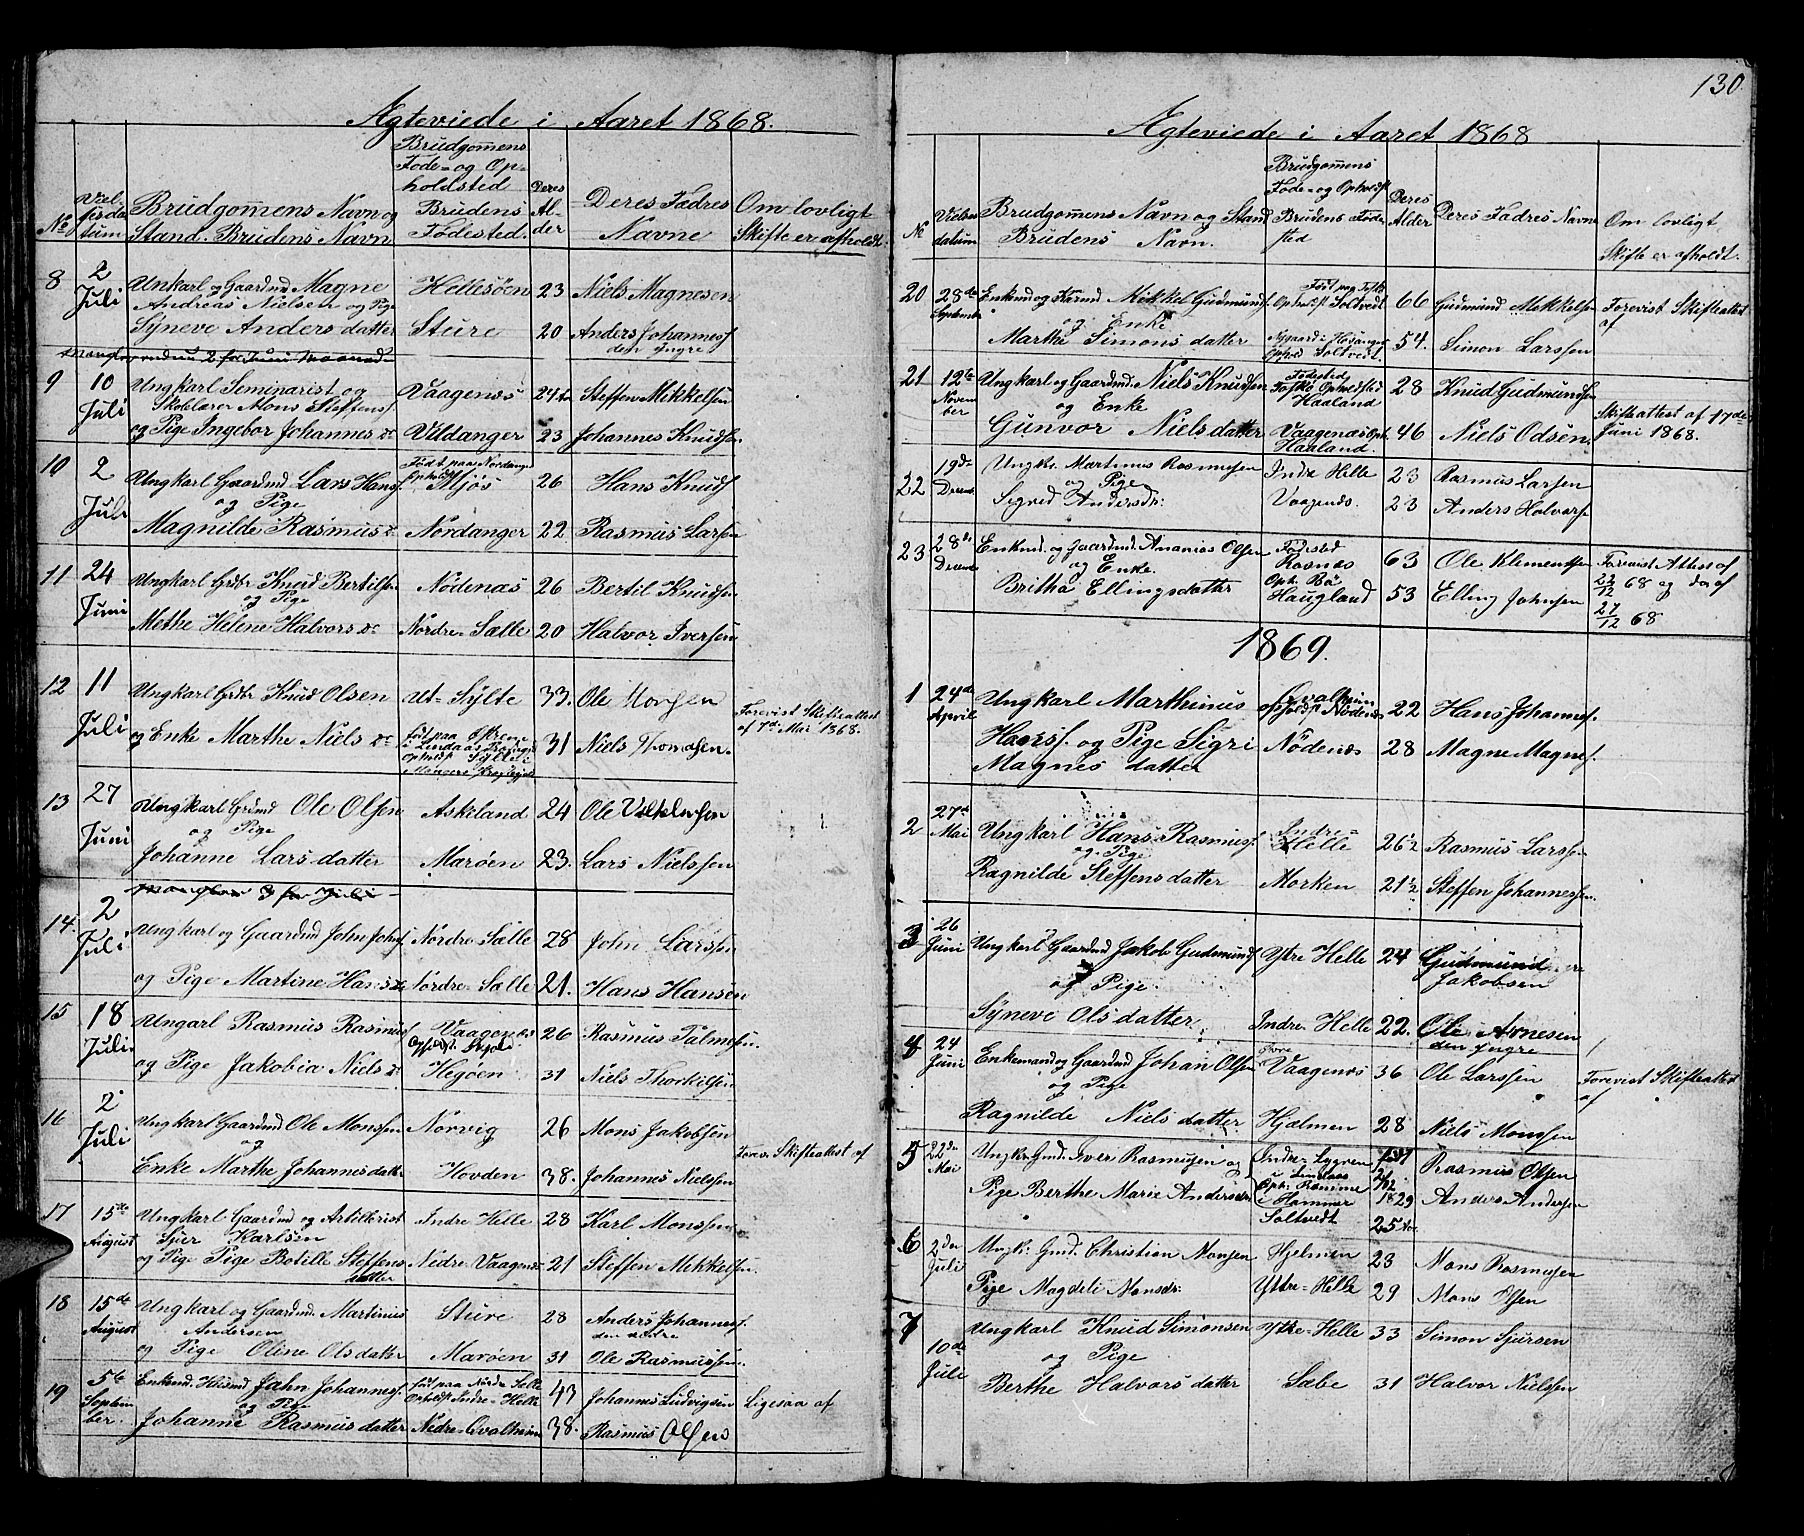 Ægteviede i Aaret 1868.
No
Vielsesdatum
Brudgomens Navn og
Stand. Brudens Navn
Brudgomens
Føde- og Op-
holdsted
Brudens
Fødested.
Deres
Al-
der
Deres Fædres
Navne
Om lovligt
Skifte er afholdt.
8
2
Juli
Unkarl og Gaardmd Magne
Andreas Nielsen og Pige
Syneve Anders datter
Hellesøen
Sture
23
20
Niels Magnesen
Anders Johannesf
den yngre
9
10
Juli
Ungkarl Seminarist og
Skolelærer Mons Steffensf
og Pige Ingebor Johannes dr
Vaagenæs
Vildanger
24
23
Steffen Mikkelsen
Johannes Knudsen
10
2
Juli
Ungkarl Gaardmd Lars Hansf
og Pige
Magnilde Rasmus dr
Født paa Nordanger
Ophold Mjøs
Nordanger
26
22
Hans Knudsf
Rasmus Larsen
11
24
Juni
Ungkarl Grdbr Knud Bertilsen
og Pige
Methe Helene Halvors dr
Nødenæs
Nordre Sælle
26
20
Bertil Knudsen
Halvor Iversen
12
11
Juli
Ungkarl Grdbr Knud Olsen
og Enke Marthe Niels dr
Sylte
født paa
i Lindaas
Opholdst Sylte i
Mangers
33.
31
Ole Monsen
Niels Thomasen.
Forevist Skifteattest
af 7de Mai 1868.
13
27
Juni
Ungkarl Grdmd Ole Olsen
og Pige
Johanne Lars datter
Askeland
Marøen
24
23.
Ole
Lars Nielssen
14.
2
Juli
Ungkarl og Gaardmd John Johnsf
og Pige Martine Hans dr
Nordre Sælle
Nordre Sælle
28
21.
John Larssen
Hans Hansen
15
18
Juli
Ungarl Rasmus Rasmusf
og Pige Jakobia Niels dr
Vaagenæs
Opholdst.
Hegøen
26
31
Rasmus
Niels Thorkelsen
16
2
Juli
Ungkarl Gaardmd Ole Monssen
og
Enke Marthe Johannes datter
Norvig
Hovden
26
38.
Mons Jakobsen
Johannes Nielssen
Forev. Skifteattest af
17
15de
August
Ungkarl Gaardmd og Artillerist
Sjur Karlsen
og Pige Pige Botille Steffens
datter
Indre Helle
Nedre Vaagenæs
28
21
Karl Monssen
Steffen Mikkelsen.
18
15de
August
Ungkarl og Gaardmd. Martinus
Andersen
og Pige Oline Olsdatter
Sture
Marøen
28
31
Anders Johannesf.
den ældre
Ole Rasmussen.
19
5te
September.
Enkemd. Huusmd John Johannesf
og Pige
Johanne Rasmus datter
født paa Nordre Sælle
Opholdst Indre Helle
Nedre Qvalheim
43
38.
Johannes Ludvigsen
Rasmus Olsen
Ligesaa af
130.
Ægteviede i Aaret 1868
No
Vielses
datum
Brudgomens Navn og Stand
Brudens Navn.
Brudgomens
Føde- og Opholdst
BrudensFøde-
sted
Deres
Alder
Deres Fædres Navne
Om lovligt
Skifte er afholdt.
20
28de
September
Enkemd og Kaarmd Mikkel Gudmundsf.
og Enke
Marthe Simons datter
Født paa Toftø
Opholdst Soltvedt
Nygaard i Hosanger
Ophold Soltvedt.
66
54.
Gudmund Mikkelsen
Simon Larssen
Forevist Skifteattest
af
21
12te
Novem
ber
Ungkarl og Gaardmd. Niels Knudsen
og Enke
Gunvor Niels datter
Fødested
Toftø Opholdsted
Haaland
Vaagenæs Oph.
Haaland.
28
46
Knud Gudmundsen
Niels Odsen
Skifteattest af 17de
Juni 1868.
22
19de
Decemb.
Ungkr. Martinus Rasmusen
og Pige
Segred Andersdr:
Indre Helle
Vaagenæs.
23
23
Rasmus Larsen
Anders Halvorse
23
28de
Decemb
Enkemd. og Gaardmd. Ananias Olsen
og Enke
Britha Ellingsdatter
Fødested
Rosnæs
Oph. Bø
Haugland
63
53
Ole Klementsen
Elling Johnsen
Forevist Attest af
22/12 68 og do af
27/12 68
1869.
1
24de
April
Ungkarl Marthinus
Hansf. og Pige Sigri
Magnes datter
Qvalheim
Opholdst Nødenæs
Nödenæs
22
28
Hans Johannesf.
Magne Magnesf.
2
27de
Mai
Ungkarl Hans Rasmusf.
og Pige
Ragnilde Steffens datter
Indre
Helle
Morken
26½
21½
Rasmus Larssen
Steffen Johannessen.
3
26
Juni
Ungkarl Gaardmd Jakob Gudmundsf
og Pige.
Syneve Olsdatter
Ytre Helle
Indre Helle
24
22.
Gudmund
Jakobsen
Ole Arnesen
den Yngre
4
24
Juni
Enkemand og Gaardmd Johan Olsen
og Pige
Ragnilde Niels datter
Vaagenæs
Hjælmen
36
28
Ole Larssen
Niels Monssen
Forevist Skifteattest
af
5
22de
Mai
Ungkr. Gmd. Iver Rasmusen og
Pige Berthe Marie Andersdr
Indre Lygren
i Lindaas
Oph: Ramme
i Hammer
Soltvedt
1829
25
Rasmus Olsen
Anders Andersen
6
2den
Juli
Ungk: Gmd. Christian Monsen
Pige Magdeli Monsdr:
Hjelmen
Yttre Helle
23
29
Mons Rasmusen
Mons Olsen
7
10de
Juli
Ungkarl Knud Simonsen
og Pige
Berthe Halvors datter
Ytre Helle
Sæbe
33
31
Simon Sjursen
Halvor Nielssen